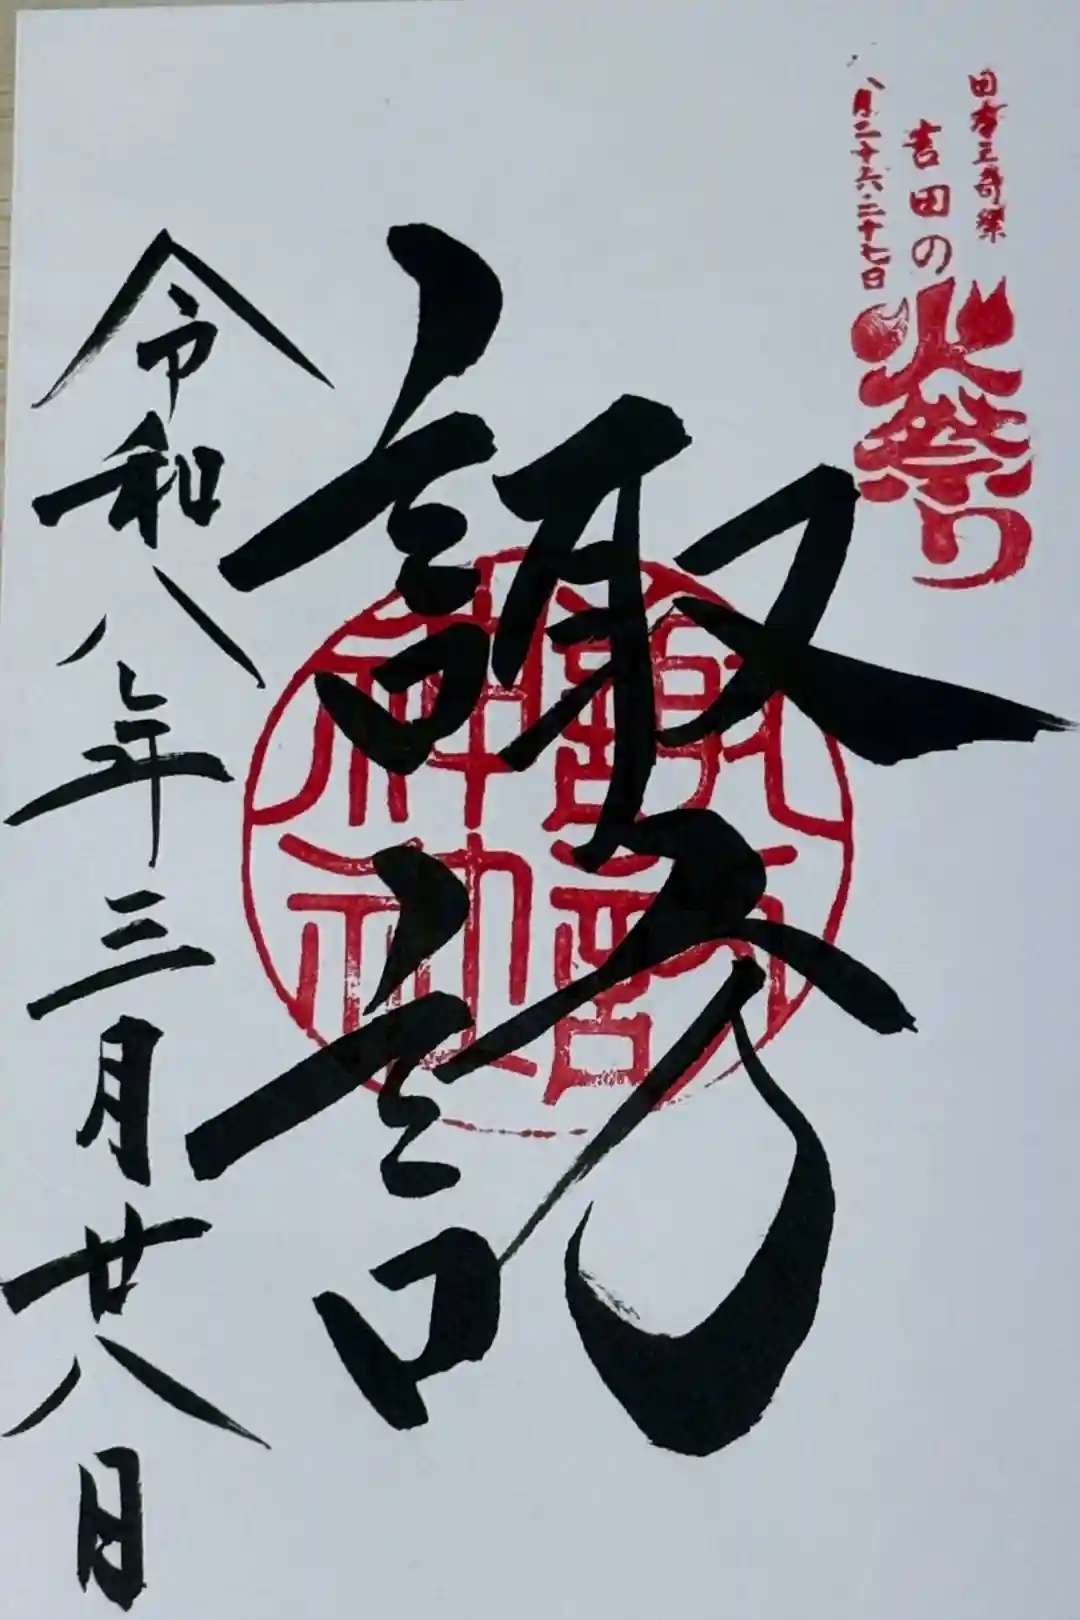 日本三奇祭
吉田の
火祭り
八月二十六・二十七日
諏訪
諏訪
神社
令和八年三月廿八日